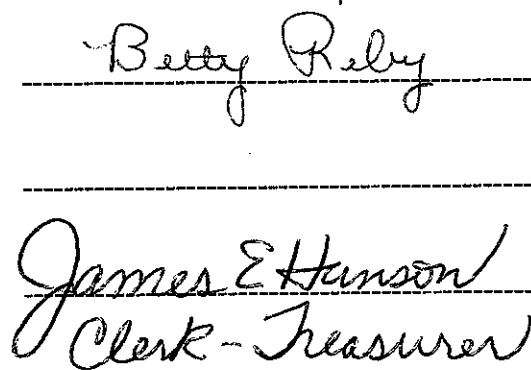 Betty Reby
James E Hanson
Clerk-Treasurer